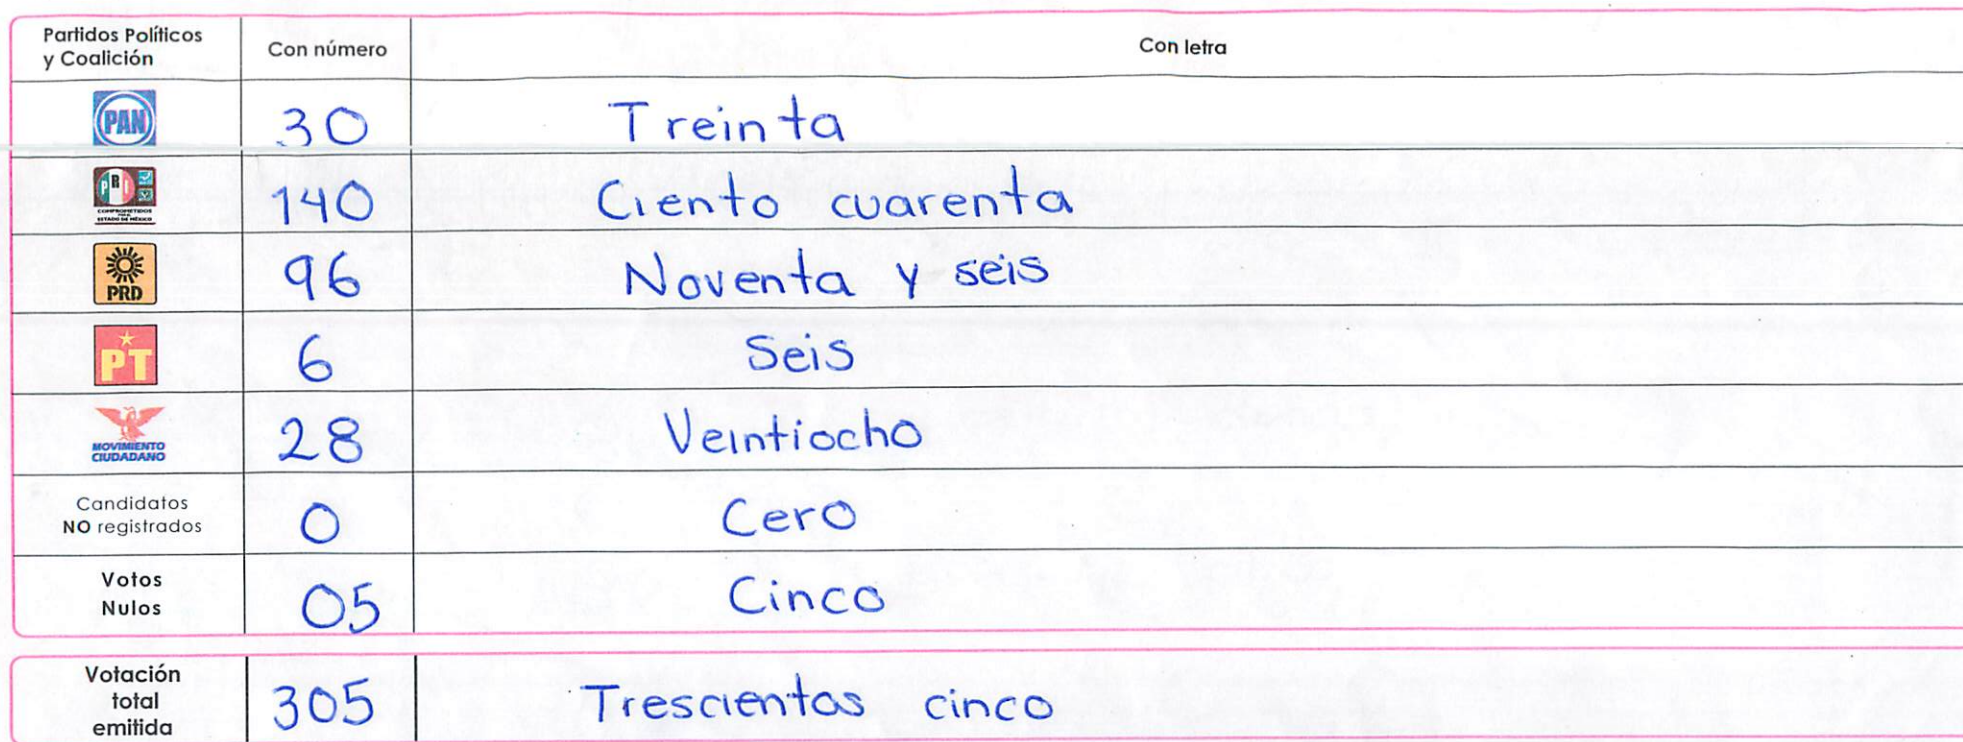 Partidos Políticos y Coalición Con número Con letra
PAN 30 Treinta
PRI COMPROMETIDOS ESTADO DE MÉXICO 140 Ciento cuarenta
PRD 96 Noventa y seis
PT 6 Seis
MOVIMIENTO CIUDADANO 28 Veintiocho
Candidatos NO registrados 0 Cero
Votos Nulos 05 Cinco
Votación total emitida 305 Trescientos cinco